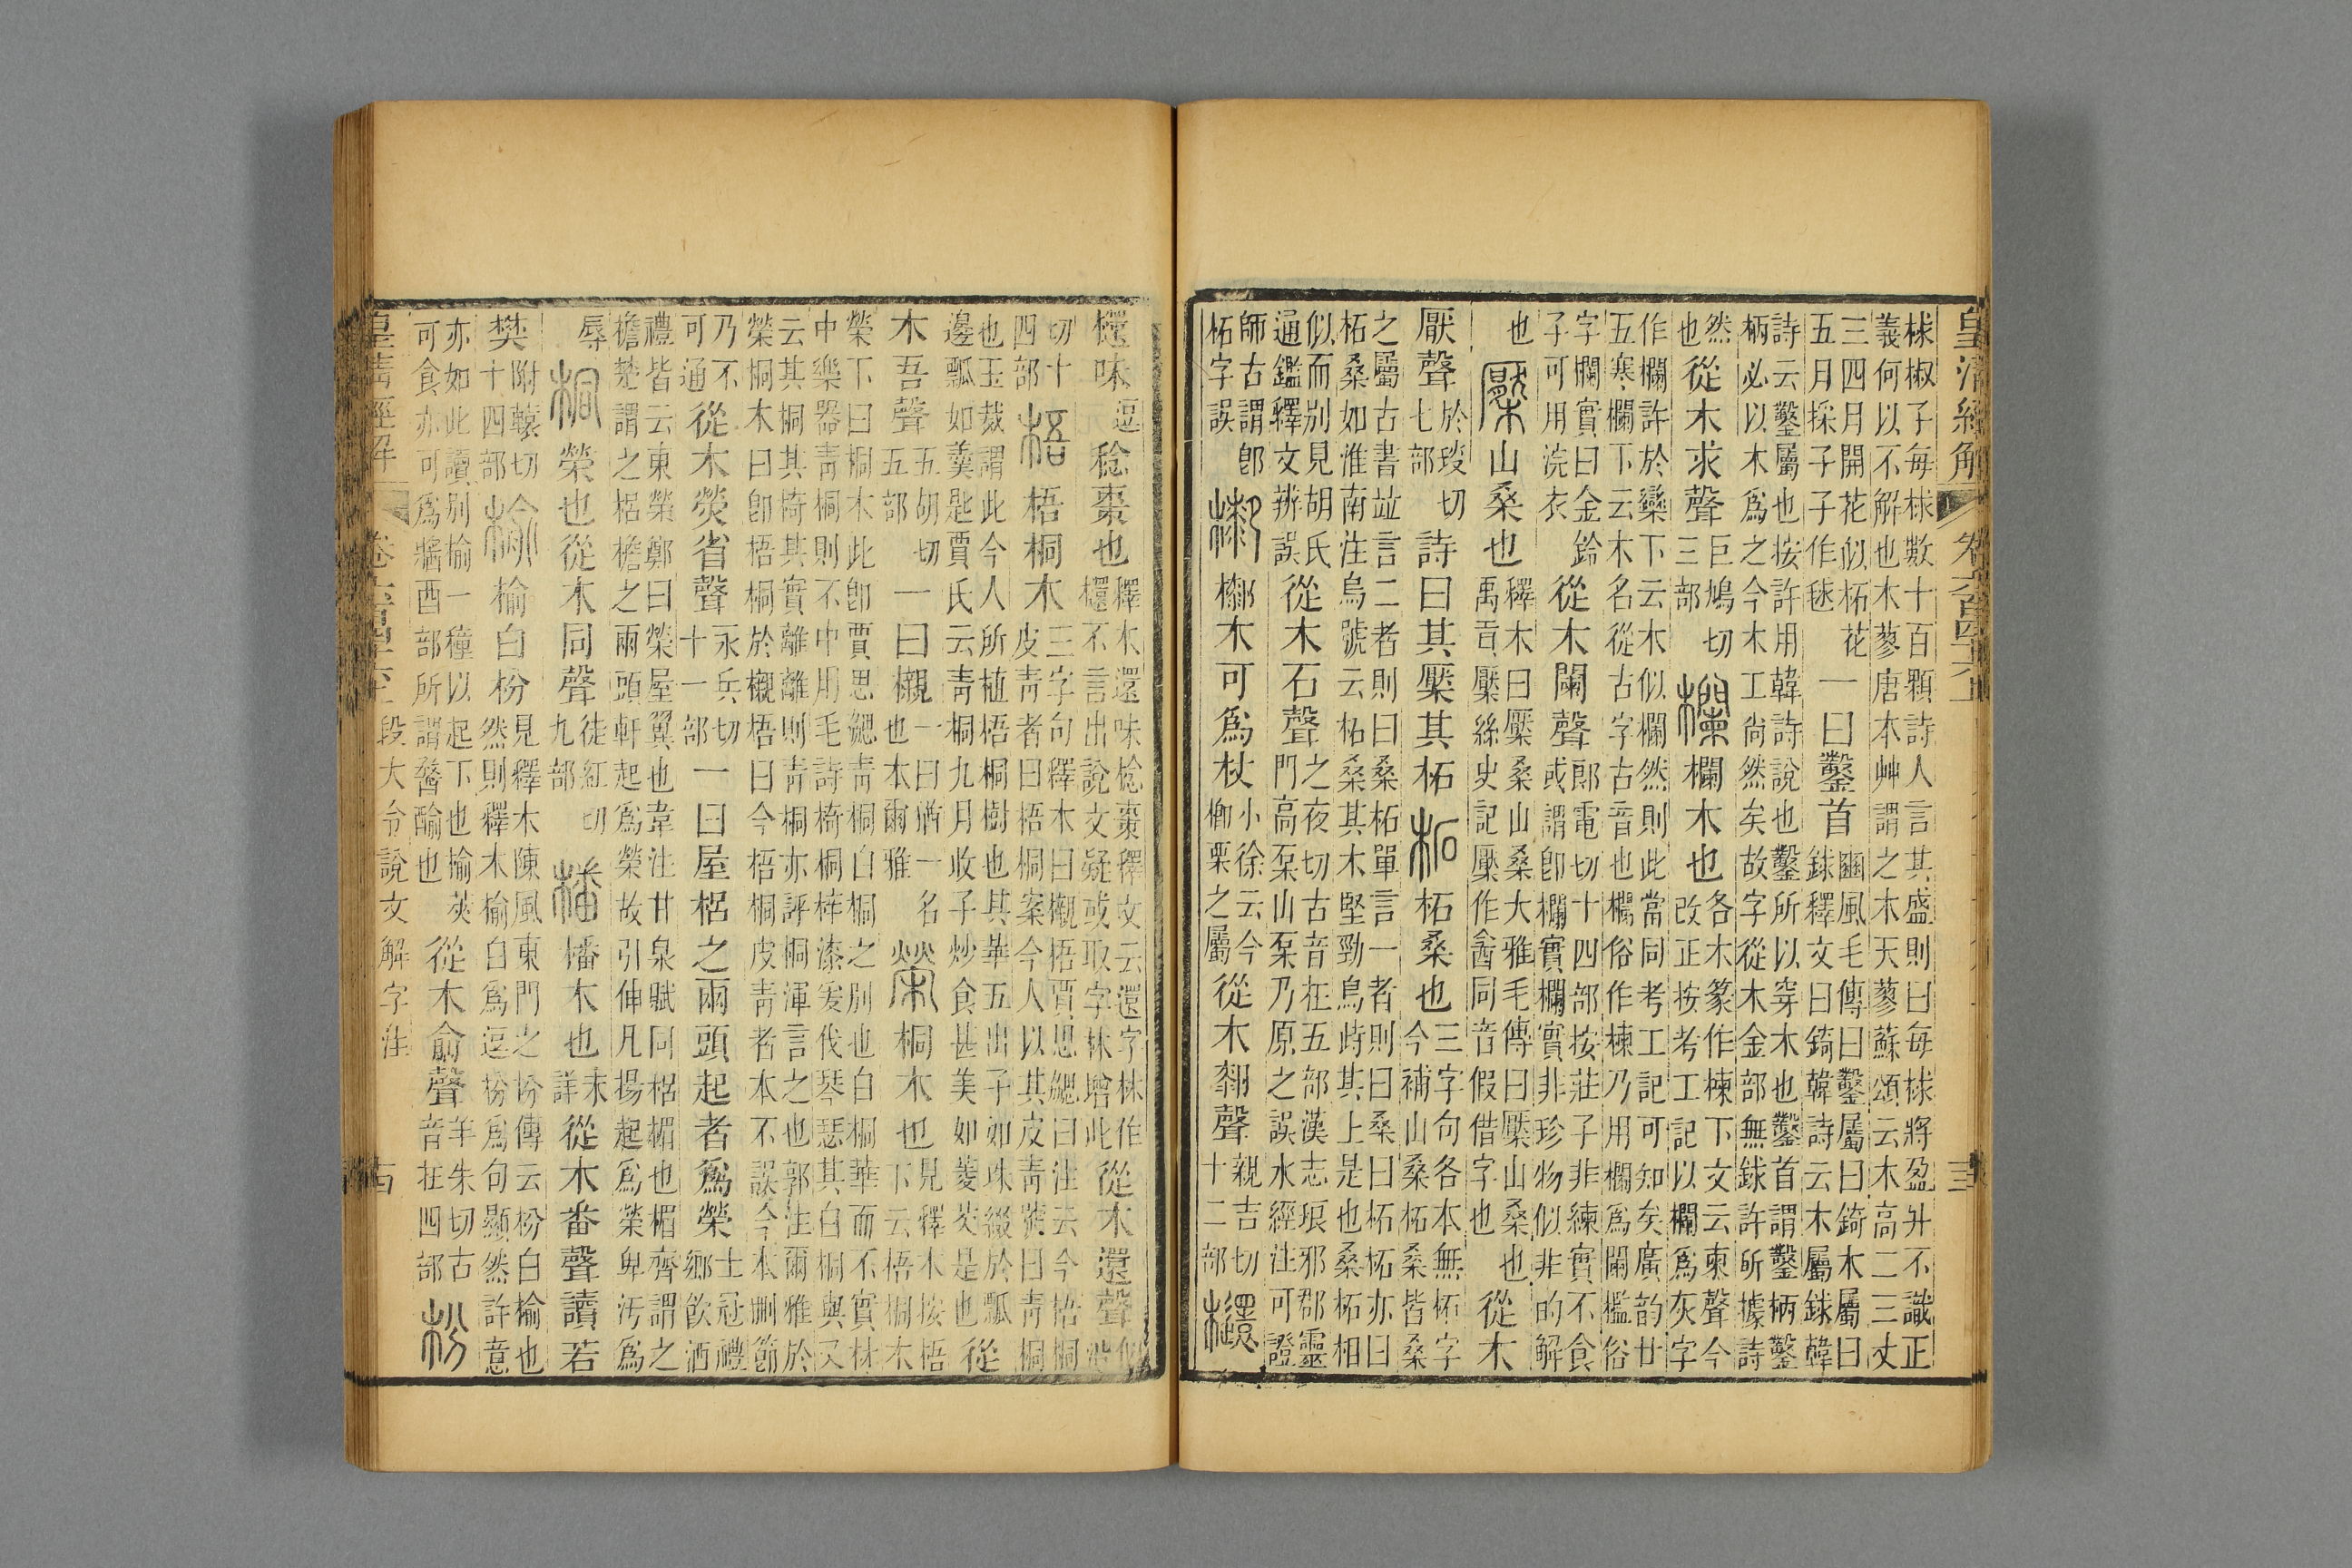 皇清經解 卷六百四十六上 三
梂椒子每梂數十百顆詩人言其盛則曰每梂將盈升不識正
義何以不解也木蓼唐本艸謂之木天蓼蘇頌云木高二三丈
三四月開花似柘花
五月採子子作毬
一曰鑿首
豳風毛傳曰鑿屬曰錡木屬曰
銶釋文曰錡韓詩云木屬銶韓
詩云鑿屬也按許用韓詩說也鑿所以穿木也鑿首謂鑿柄鑿
柄必以木爲之今木工尙然矣故字從木金部無銶許所據詩
然
也
從木求聲
巨鳩切
三部
欄 欄木也
各木篆作楝下文云柬聲今
改正按考工記以欄爲灰字
作欄許於䜌下云木似欄然則此當同考工記可知矣廣韵廿
五寒欄下云木名從古字古音也欄俗作楝乃用欄爲闌檻俗
字欄實曰金鈴
子可用浣衣
從木闌聲
郎電切十四部按莊子非練實不食
或謂卽欄實欄實非珍物似非的解
也
檿 山桑也
釋木曰檿桑山桑大雅毛傳曰檿山桑也
禹貢檿絲史記檿作酓同音假借字也
從木
厭聲
於琰切
七部
詩曰其檿其柘 柘 柘桑也
三字句各本無柘字
今補山桑柘桑皆桑
之屬古書竝言二者則曰桑柘單言一者則曰桑曰柘柘亦曰
柘桑如淮南注烏號云柘桑其木堅勁鳥歭其上是也桑柘相
似而別見胡氏
通鑑釋文辨誤
從木石聲
之夜切古音在五部漢志琅邪郡靈
門高山乃原之誤水經注可證
師古謂卽
柘字誤
木可爲杖
小徐云今
榔栗之屬
從木聲
親吉切
十二部
味
逗
稔棗也
釋木還味棯棗釋文云還字林作
不言出說文疑或取字林增此
從木還聲
似沿
切十
四部
梧 梧桐木
三字句釋木曰櫬梧賈思勰曰注云今梧桐
皮靑者曰梧桐案今人以其皮靑號曰靑桐
也玉裁謂此今人所植梧桐樹也其華五出子如珠綴於瓢
邊瓢如羹匙賈氏云靑桐九月收子炒食甚美如菱芡是也
從
木吾聲
五胡切
五部
一曰櫬
一曰猶一名
也本爾雅
榮 桐木也
見釋木按梧
下云梧桐木
榮下曰桐木此卽賈思勰靑桐白桐之別也白桐華而不實材
中樂器靑桐則不中用毛詩椅桐梓漆爰伐琴瑟其白桐與又
云其桐其椅其實離離則靑桐亦評桐渾言之也郭注爾雅於
榮桐木曰卽梧桐於櫬梧曰今梧桐皮靑者本不誤今本刪節
乃不
可通
從木熒省聲
永兵切
十一部
一曰屋梠之兩頭起者爲榮
士冠禮
鄉飮酒
禮皆云東榮鄭曰榮屋翼也韋注甘泉賦同梠楣也楣齊謂之
檐楚謂之梠檐之兩頭軒起爲榮故引伸凡揚起爲榮卑汚爲
辱
桐 榮也從木同聲
徒紅切
九部
橎 橎木也
未
詳
從木番聲讀若
樊
附轅切
十四部
榆 榆白枌
見釋木陳風東門之枌傳云枌白榆也
然則釋木榆白爲逗枌爲句顯然許意
亦如此讀別榆一種以起下也榆莢
可食亦可爲牆酉部所謂也
從木俞聲
羊朱切古
音在四部
枌
皇清經解 卷六百四十六上 段大令說文解字注